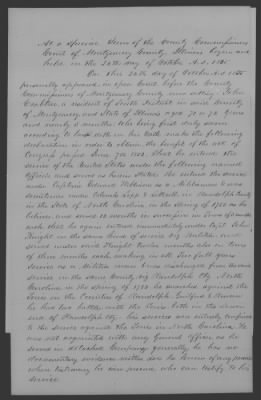 At a Special Term of the County Commissioners
Court of Montgomery County Illinois begun and
held on the 26th day of October A.D. 1835.
On this 26th day of October A.D. 1835
personally appeared, in open Court before the County
Commissioners of Montgomery County now sitting, John
a resident of South District in said County
of Montgomery and State of Illinois aged 70 or 72 years
and who being first duly sworn
according to law doth on his oath make the following
declaration in order to obtain the benefit of the act of
Congress passed June 7th 1832. That he entered the
service of the United States under the following named
officers and served as herein stated. He entered the service
under Captain Edward Williams as a Militiaman & was
under Colonel in Randolph County
in the State of North Carolina in the Spring of 1780 as he
believes and served 12 months in service in Tours of 3 months
each that he again entered immediately under Capt. John
Knight in the same kind of service viz. Militia, and
served under said Knight twelve months also in tours
of three months each making in all Two full years
service as a Militia man & was discharged from
service in the same County viz. Randolph Cty. North
Carolina in the Spring of 1782 he marched against the
Tories in the Counties of Randolph, Guilford & Rowan
he had two battles with the Tories both in the
end of Randolph Cty. his service was entirely confined
to the service against the Tories in North Carolina. He
was not acquainted with any General officer as he
served in detached Companies generally he has no
documentary evidence neither does he know of any person
whose testimony he can procure who can testify to his
service.